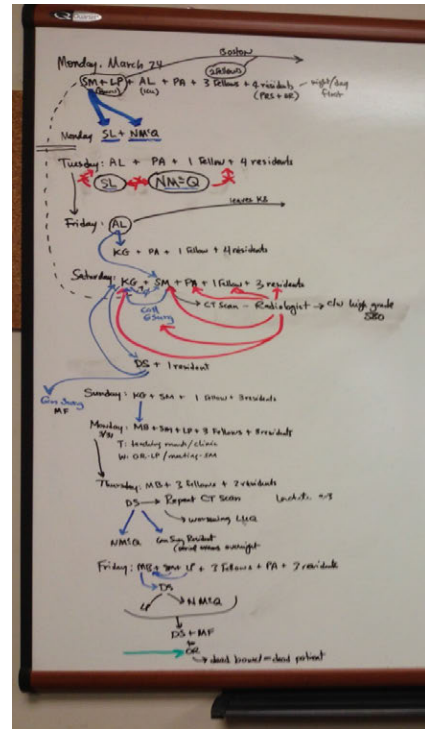 Quartet
Boston
Monday, March 24
2 fellows
SM + LP + AL + PA + 3 Fellows + 4 residents — night/day
(ICU) (PRS + OR) float
Monday SL + NMEQ
Tuesday: AL + PA + 1 Fellow + 4 residents
SL NMEQ
leaves KS
Friday: AL
KG + PA + 1 Fellow + 4 residents
Saturday: KG + SM + PA + 1 Fellow + 3 residents
Call CT Scan — Radiologist → c/w high grade
GSurg SBO
DS + 1 resident
Gen Surg
MF
Sunday: KG + SM + 1 Fellow + 3 residents
Monday: MB + SM + LP + 3 Fellows + 8 residents
3/31 T: teaching rounds/clinic
W: OR-LP/meeting-SM
Thursday: MB + 3 Fellows + 2 residents
DS → Repeat CT Scan
worsening LUQ
NMEQ Gen Surg Resident
overnight)
Friday: MB + SM + LP + 3 Fellows + PA + 7 residents
DS
LP NMEQ
DS + MF
OR
dead bowel = dead patient